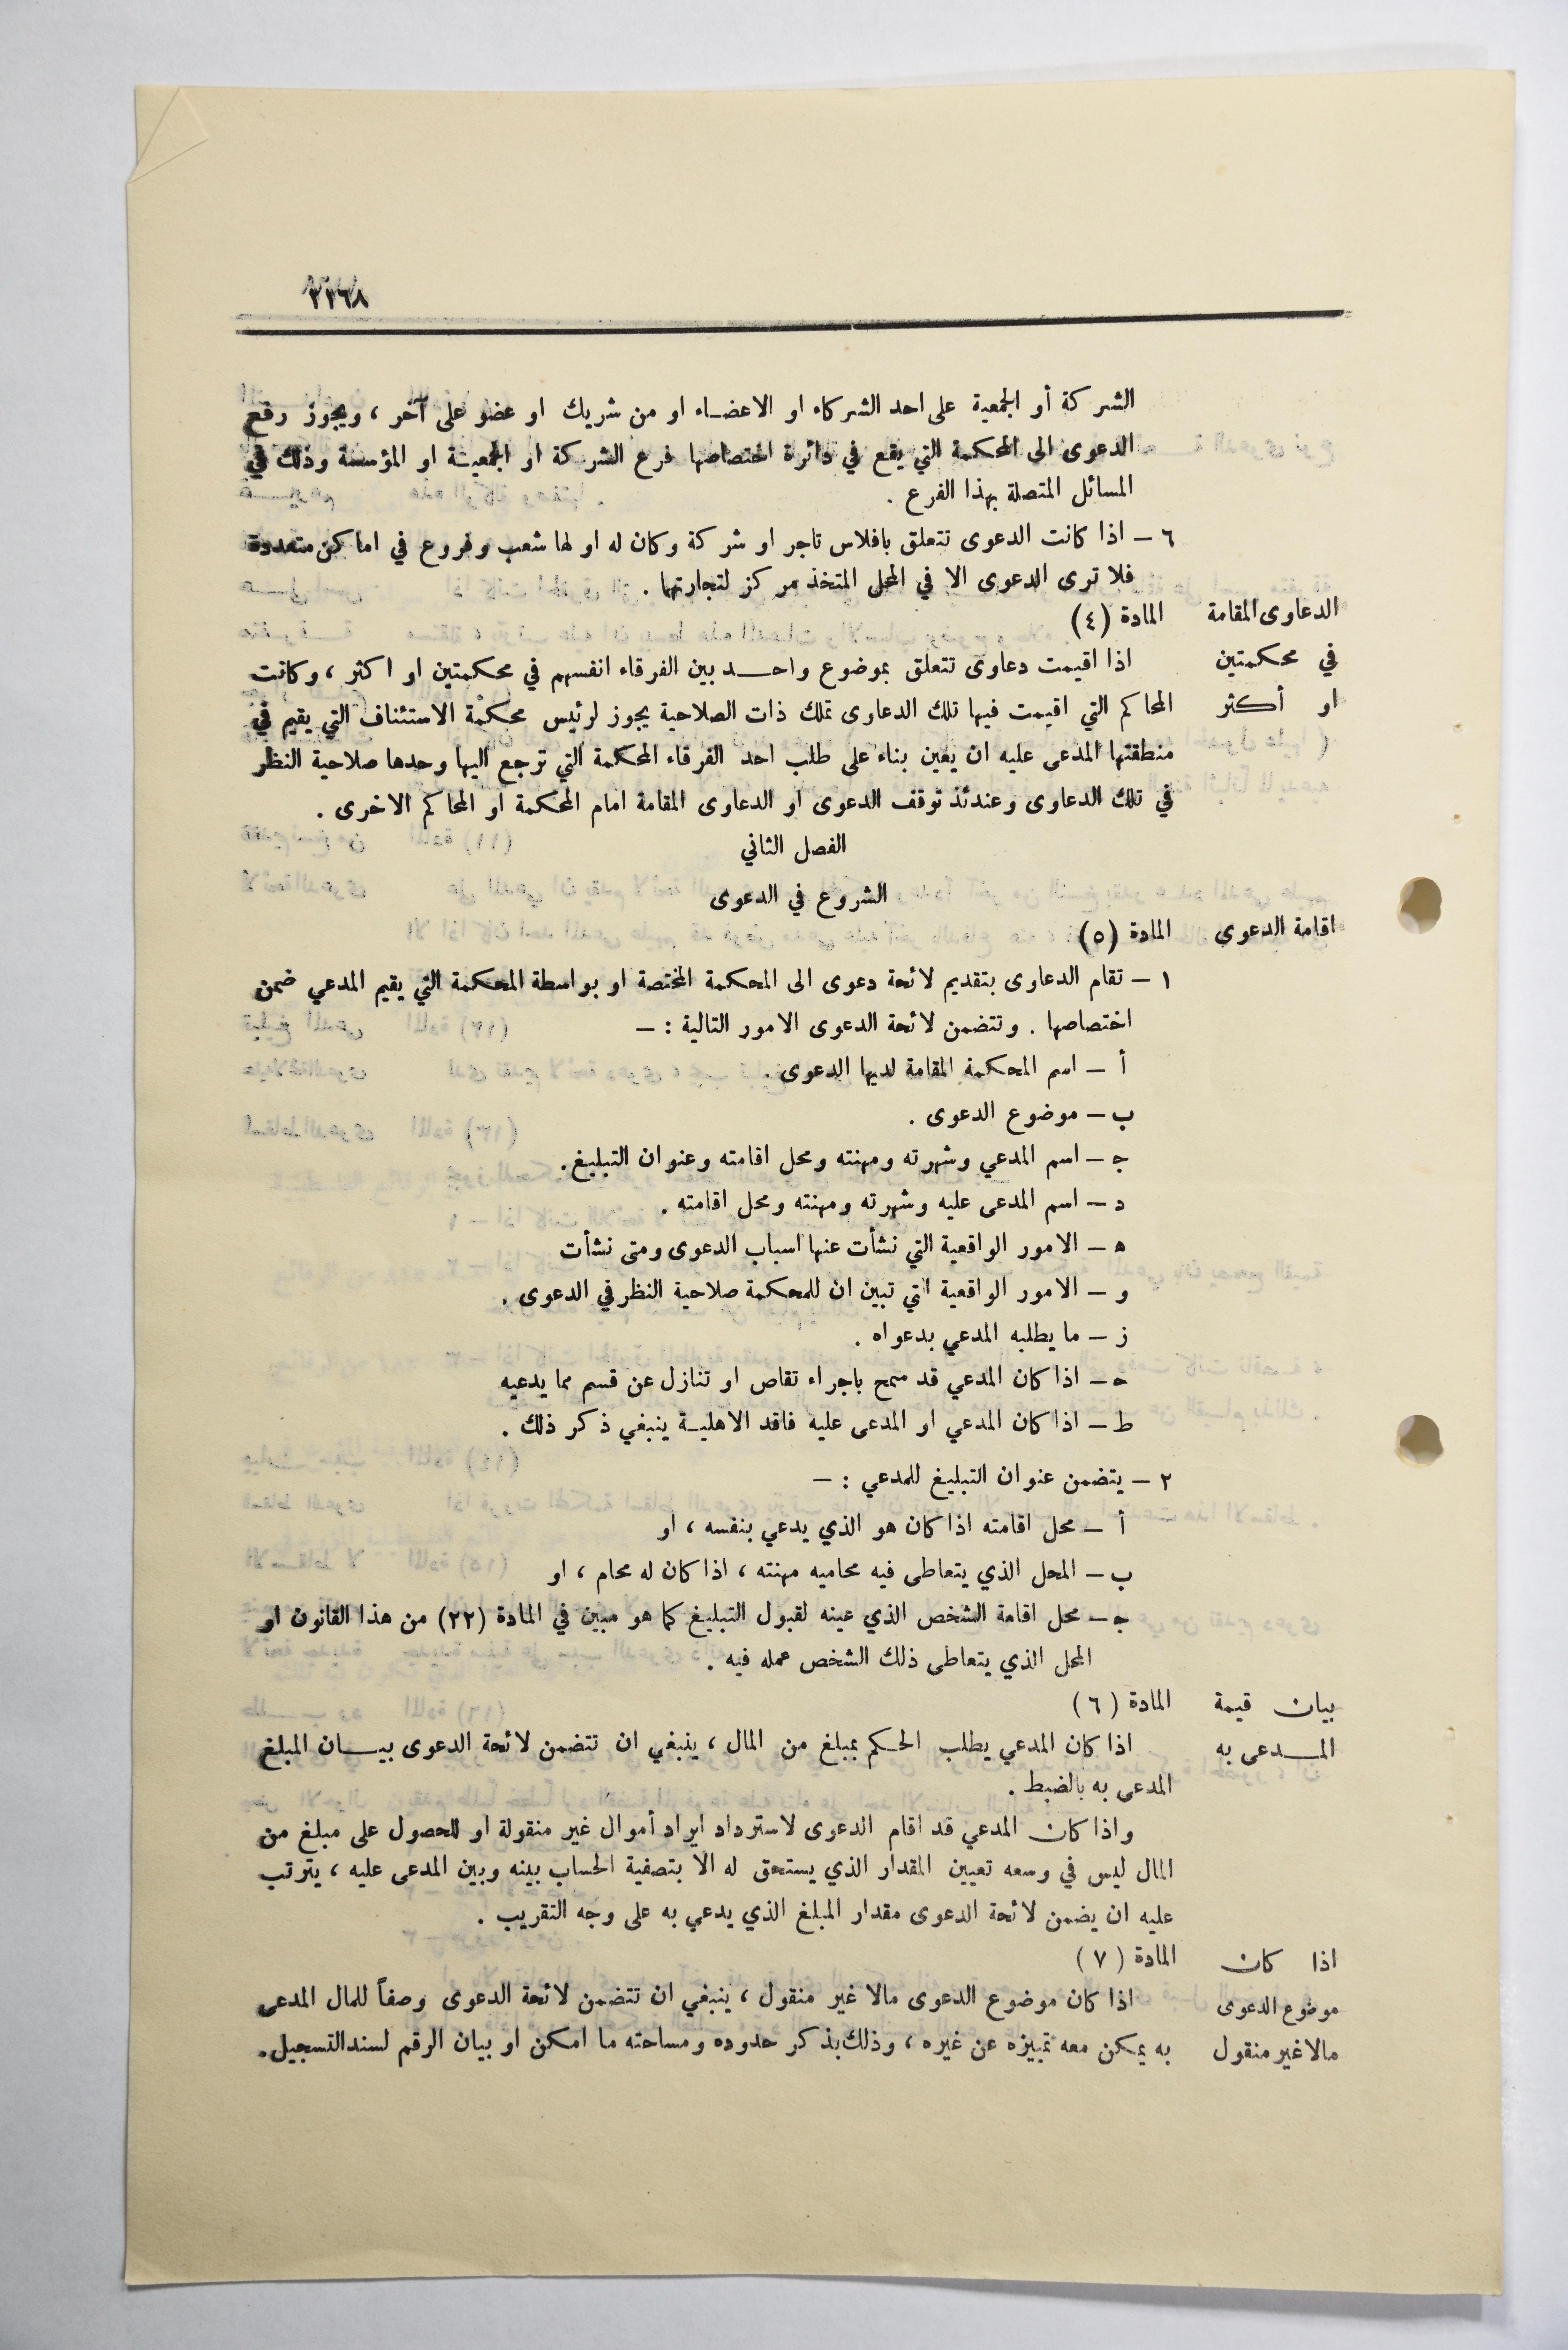 ٣٣٦٨
الشركة أو الجمعية على احد الشركاء او الاعضاء او من شريك او عضو على آخر ، ويجوز رفع
الدعوى الى المحكمة التي يقع في دائرة اختصاصها فرع الشركة او الجمعية او المؤسسة وذلك في
المسائل المتصلة بهذا الفرع .
٦ – اذا كانت الدعوى تتعلق بافلاس تاجر او شركة وكان له او لها شعب وفروع في اماكن متعددة
فلا ترى الدعوى الا في المحل المتخذ مركز لتجارتها .
الدعاوى المقامة المادة (٤)
في محكمتين اذا اقيمت دعاوى تتعلق بموضوع واحد بين الفرقاء انفسهم في محكمتين او اكثر ، وكانت
او أكثر المحاكم التي اقيمت فيها تلك الدعاوى تملك ذات الصلاحية يجوز لرئيس محكمة الاستئناف التي يقيم في
منطقتها المدعى عليه ان يعين بناء على طلب احد الفرقاء المحكمة التي ترجع اليها وحدها صلاحية النظر
في تلك الدعاوى وعندئذ توقف الدعوى او الدعاوى المقامة امام المحكمة او المحاكم الاخرى .
الفصل الثاني
الشروع في الدعوى
اقامة الدعوى المادة (٥)
١ – تقام الدعاوى بتقديم لائحة دعوى الى المحكمة المختصة او بواسطة المحكمة التي يقيم المدعي ضمن
اختصاصها . وتتضمن لائحة الدعوى الامور التالية : –
أ – اسم المحكمة المقامة لديها الدعوى .
ب – موضوع الدعوى .
ج – اسم المدعي وشهرته ومهنته ومحل اقامته وعنوان التبليغ .
د – اسم المدعى عليه وشهرته ومهنته ومحل اقامته .
ه – الامور الواقعية التي نشأت عنها اسباب الدعوى ومتى نشأت
و – الامور الواقعية التي تبين ان للمحكمة صلاحية النظر في الدعوى .
ز – ما يطلبه المدعي بدعواه .
ح – اذا كان المدعي قد سمح باجراء تقاص او تنازل عن قسم مما يدعيه
ط – اذا كان المدعي او المدعى عليه فاقد الاهلية ينبغي ذكر ذلك .
٢ – يتضمن عنوان التبليغ للمدعي : –
أ – محل اقامته اذا كان هو الذي يدعي بنفسه ، او
ب – المحل الذي يتعاطى فيه محاميه مهنته ، اذا كان له محام ، او
ج – محل اقامة الشخص الذي عينه لقبول التبليغ كما هو مبين في المادة (٢٢) من هذا القانون او
المحل الذي يتعاطى ذلك الشخص عمله فيه .
بيان قيمة المادة (٦)
المدعى به اذا كان المدعي يطلب الحكم بمبلغ من المال ، ينبغي ان تتضمن لائحة الدعوى بيان المبلغ
المدعى به بالضبط .
واذا كان المدعي قد اقام الدعوى لاسترداد ايراد أموال غير منقولة او للحصول على مبلغ من
المال ليس في وسعه تعيين المقدار الذي يستحق له الا بتصفية الحساب بينه وبين المدعى عليه ، يترتب
عليه ان يضمن لائحة الدعوى مقدار المبلغ الذي يدعي به على وجه التقريب .
اذا كان المادة (٧)
موضوع الدعوى اذا كان موضوع الدعوى مالا غير منقول ، ينبغي ان تتضمن لائحة الدعوى وصفاً للمال المدعى
مالا غير منقول به يمكن معه تمييزه عن غيره ، وذلك بذكر حدوده ومساحته ما امكن او بيان الرقم لسند التسجيل .